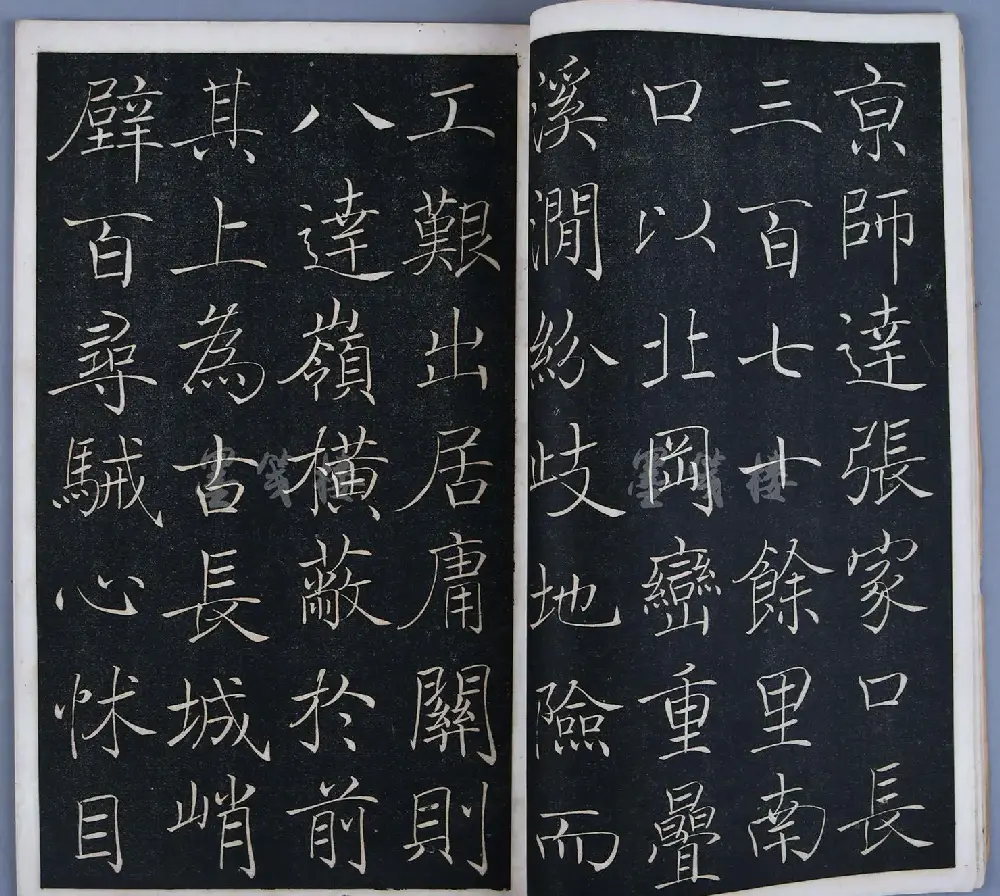 京師達張家口長
三百七十餘里南
口以北岡巒重疊
溪澗紛歧地險而
工艱出居庸關則
八達嶺橫蔽於前
其上為古長城峭
壁百尋駴心怵目